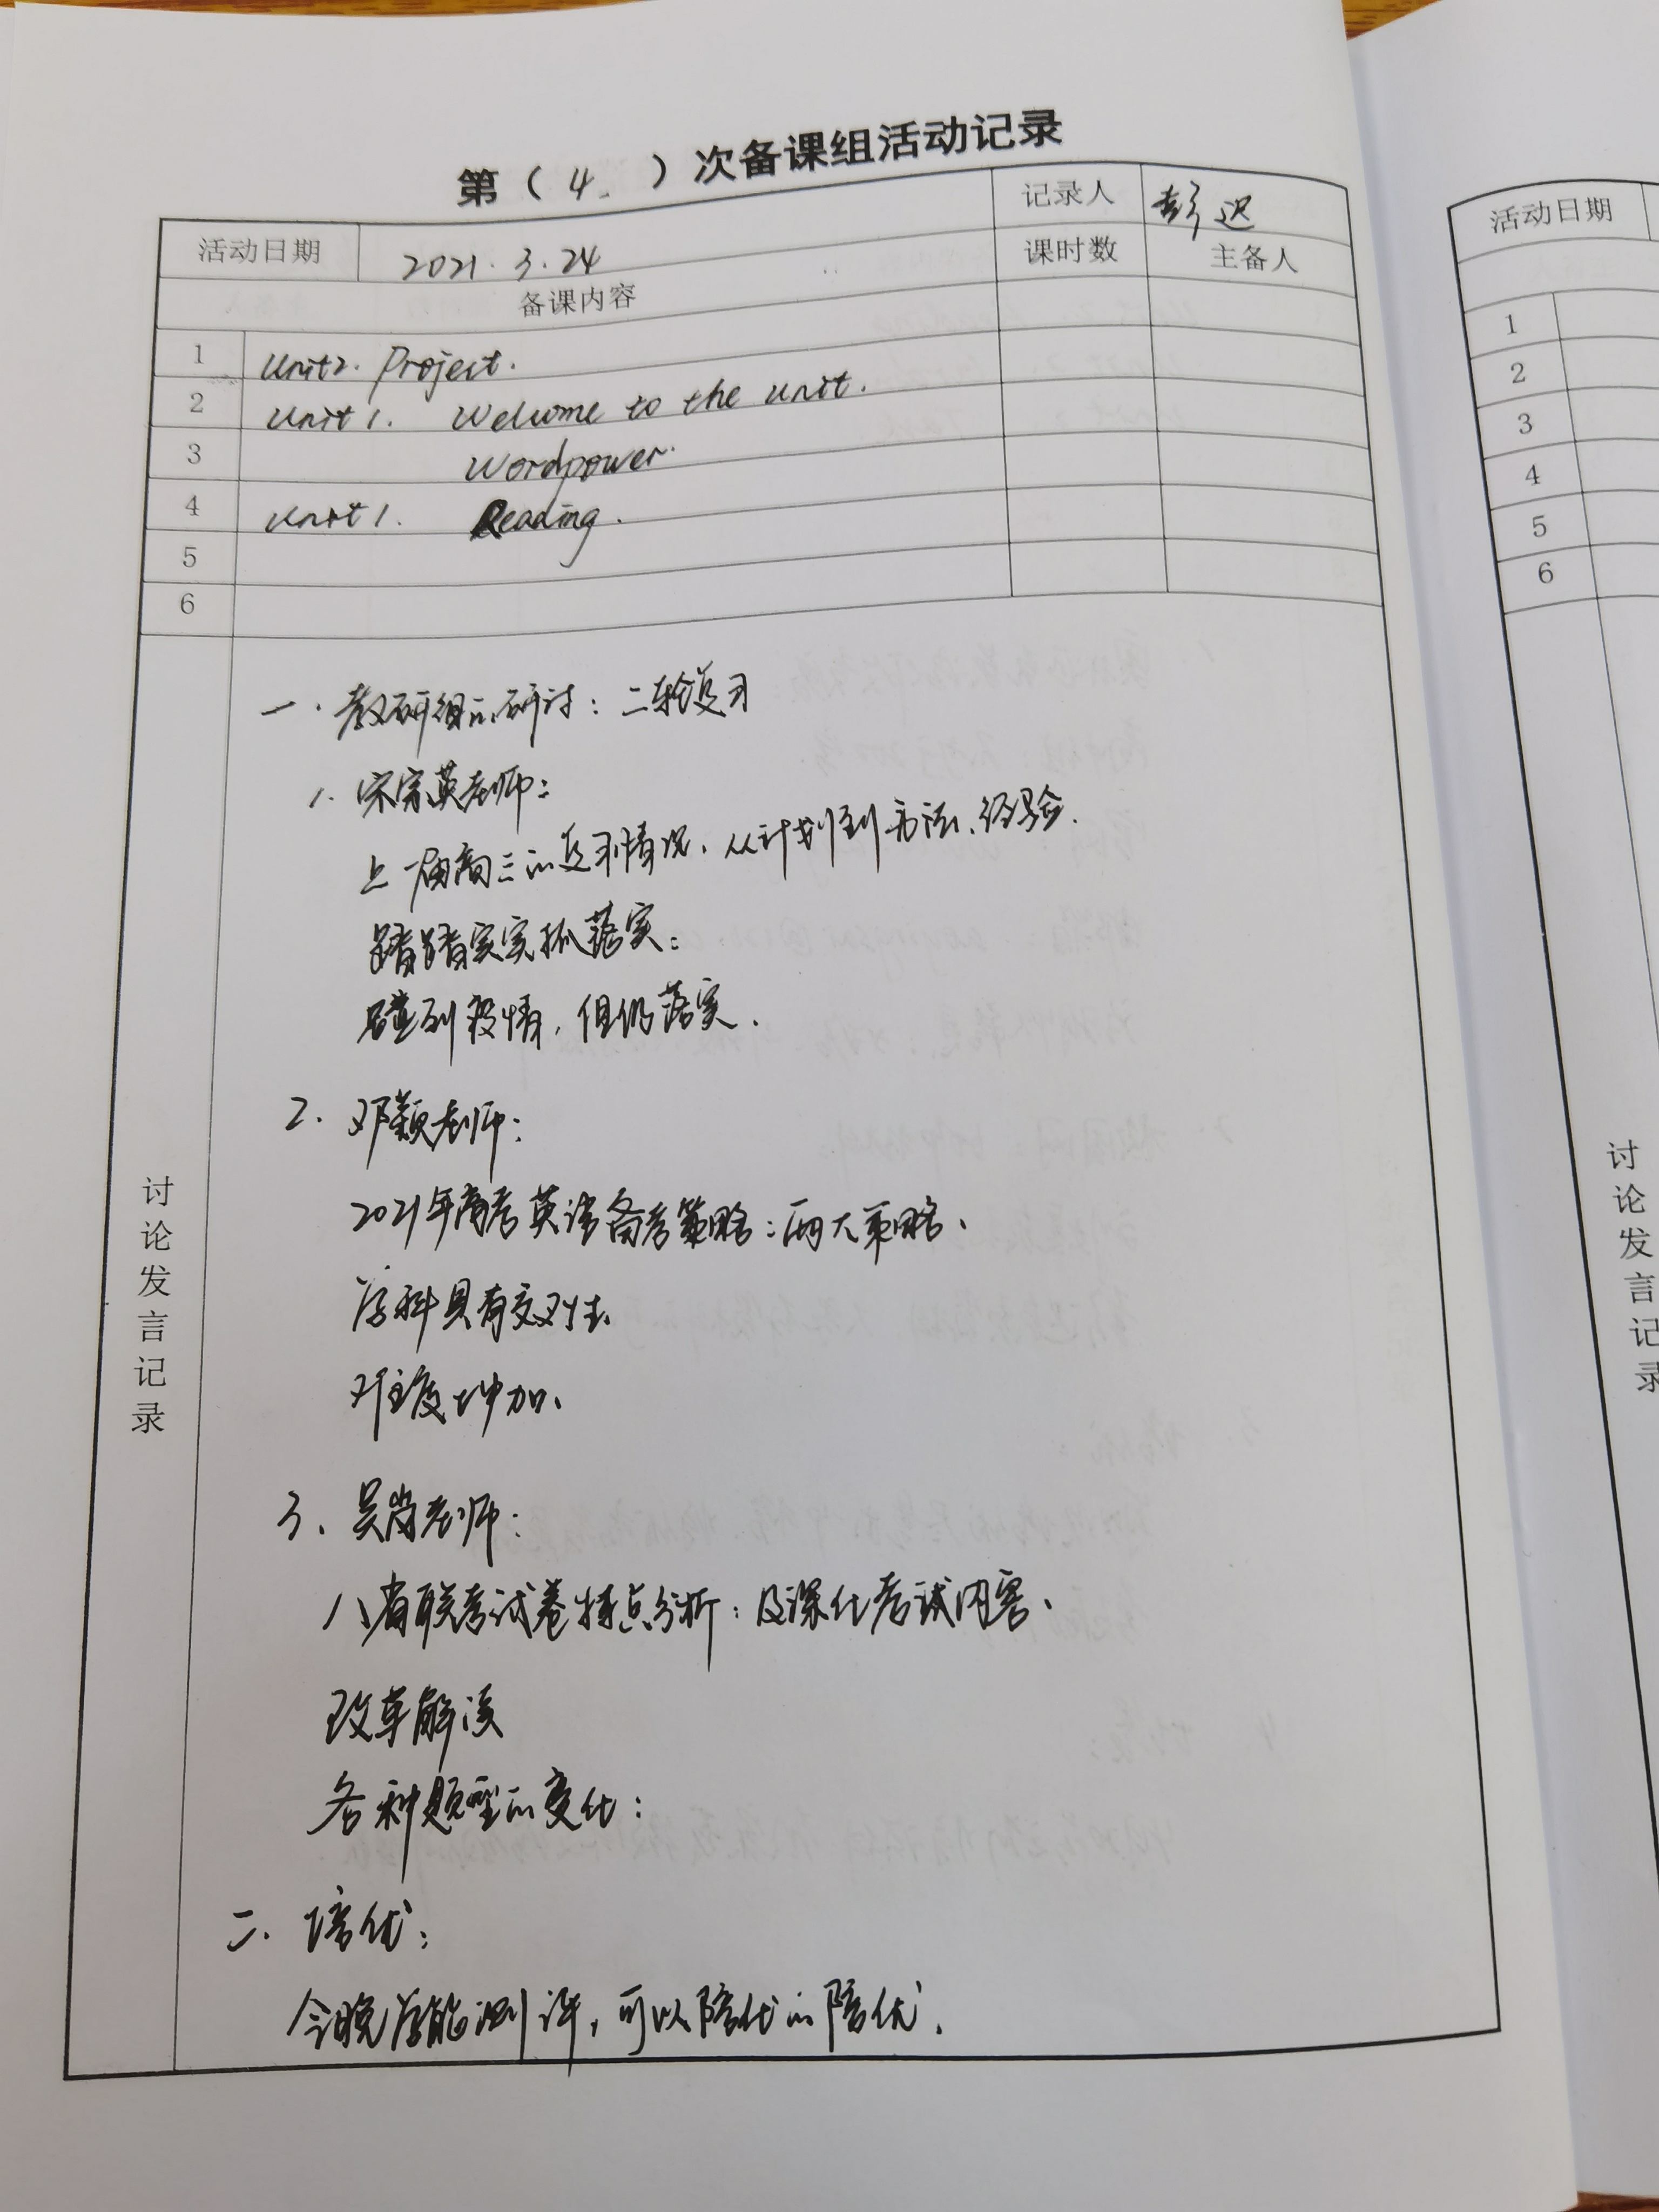 第（4.）次备课组活动记录
活动日期 2021.3.24 记录人 彭迟
备课内容 课时数 主备人
1 Unit2. Project.
2 Unit 1. Welcome to the unit.
3 Wordpower.
4 Unit 1. Reading.
5
6
讨论发言记录
一.教研组的研讨：二轮复习
1. 宋宗英老师：
上一届高三的复习情况、从计划到方法、经验.
踏踏实实抓落实：
碰到疫情，但仍落实.
2. 邓颖老师：
2021年高考英语备考策略：两大策略、
学科具有交叉性、
难度增加、
3、吴尚老师：
八省联考试卷特点分析：及深化考试内容、
改革解读
各种题型的变化：
二、培优：
今晚学能测评，可以陪优的陪优.
活动日期
1
2
3
4
5
6
讨论发言记录